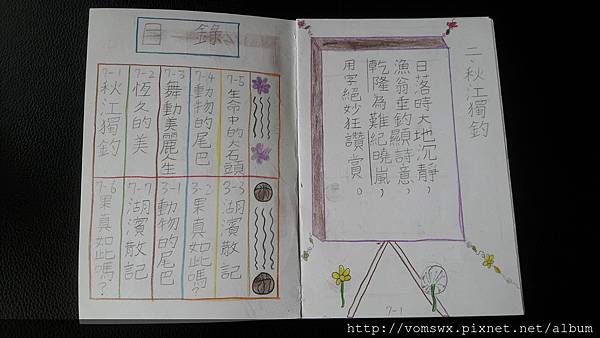 目 錄
7-1 秋江獨釣
7-2 恆久的美
7-3 舞動美麗人生
7-4 動物的尾巴
7-5 生命中的大石頭
7-6 果真如此嗎？
7-7 湖濱散記
3-1 動物的尾巴
3-2 果真如此嗎？
3-3 湖濱散記
二、秋江獨釣
日落時大地沉靜，
漁翁垂釣顯詩意，
乾隆為難紀曉嵐，
用字絕妙狂讚賞。
7-1
http://vomswx.pixnet.net/album